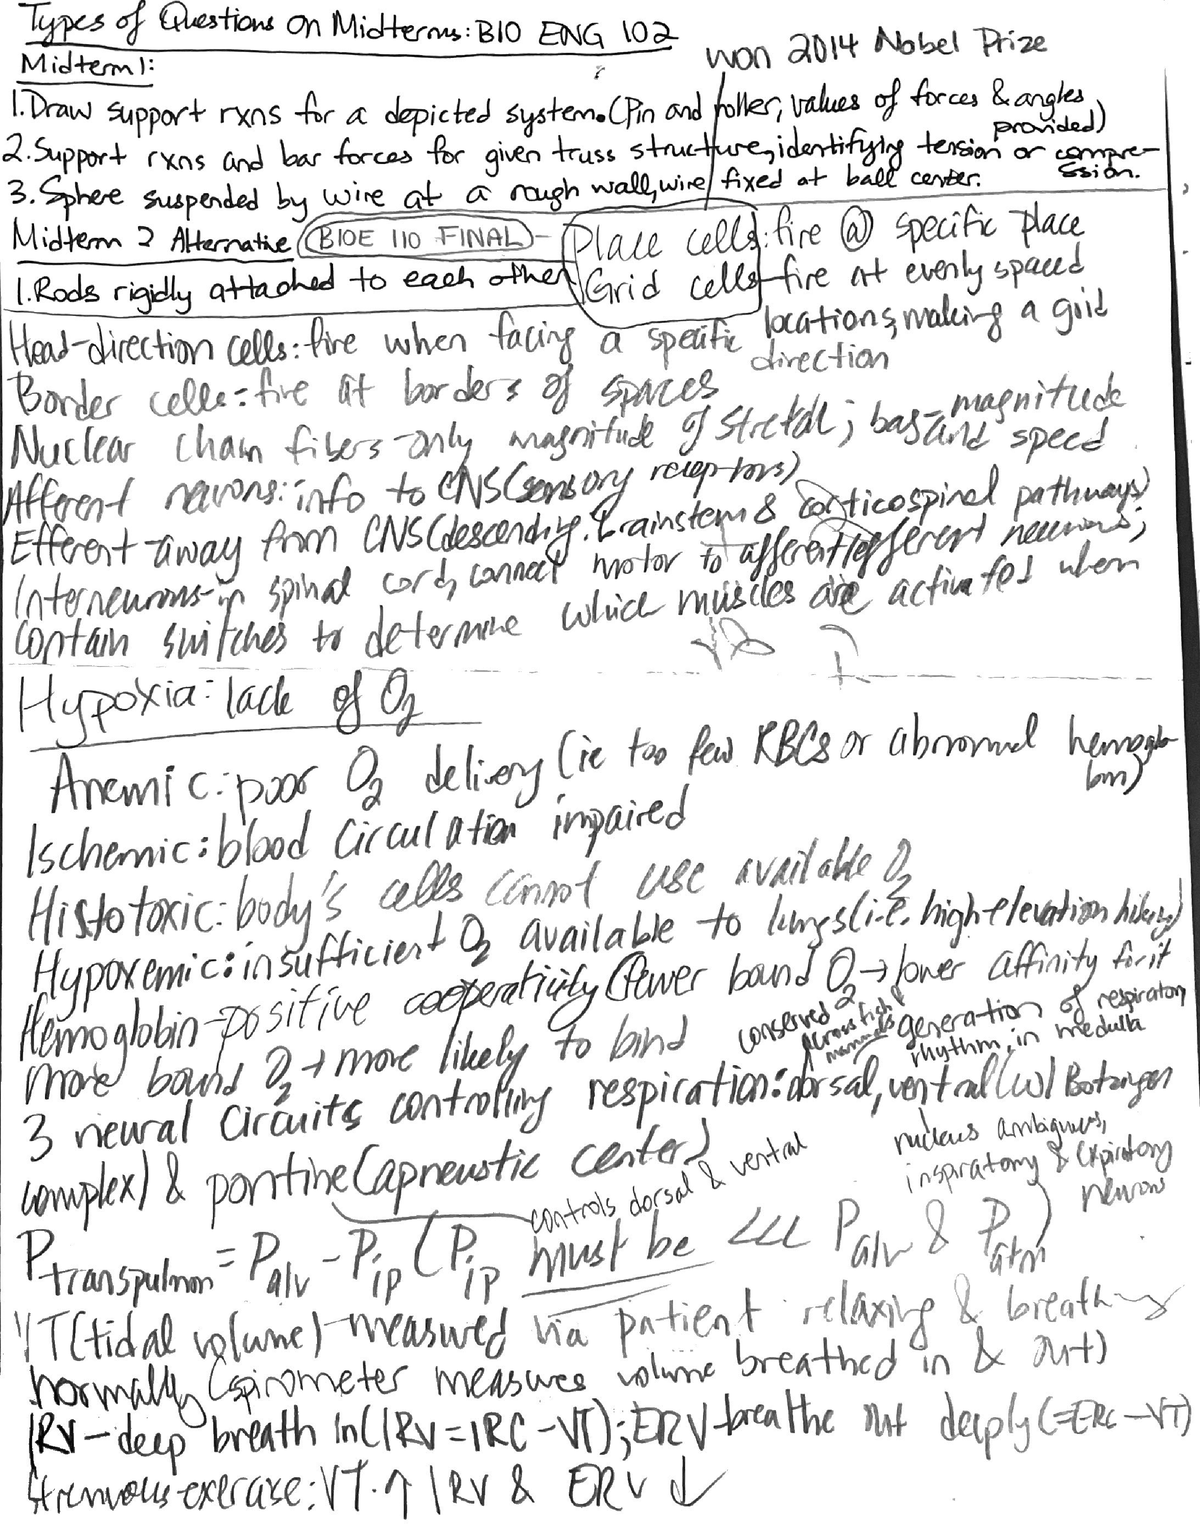 Types of Questions on Midterms: BIO ENG 102
won 2014 Nobel Prize
Midterm 1:
1. Draw support rxns for a depicted system. (Pin and roller, values of forces & angles provided)
2. Support rxns and bar forces for given truss structure, identifying tension or compression.
3. Sphere suspended by wire at a rough wall, wire fixed at ball center.
Midterm 2 Alternative
1. Rods rigidly attached to each other
BIOE 110 FINAL - Place cells: fire @ specific place
Grid cells - fire at evenly spaced
locations, making a grid
Head-direction cells: fire when facing a specific direction
Border cells: fire at borders of spaces
Nuclear chain fibers - only magnitude of stretch; bag - magnitude and speed
Afferent neurons: info to CNS (sensory receptors)
Efferent - away from CNS (descending. brainstem & corticospinal pathways)
Interneurons - in spinal cord, connect motor to afferent/efferent neurons;
contain switches to determine which muscles are activated when
Hypoxia: lack of O2
Anemic: poor O2 delivery (ie too few RBCs or abnormal hemoglobin)
Ischemic: blood circulation impaired
Histotoxic: body's cells cannot use available O2
Hypoxemic: insufficient O2 available to lungs (i.e. high-elevation hiking)
Hemoglobin - positive cooperativity (Fewer bound O2 → lower affinity for it
more bound O2 → more likely to bind
conserved across fish & mammals
generation of respiratory rhythm, in medulla
3 neural circuits controlling respiration: dorsal, ventral (w/ Botzinger
complex) & pontine (apneustic center)
nucleus ambiguus, inspiratory & expiratory neurons
controls dorsal & ventral
Ptranspulmon = Palv - Pip (Pip must be <<< Palv & Patm)
VT (tidal volume) - measured via patient relaxing & breathing
normally (spirometer measures volume breathed in & out)
IRV - deep breath in (IRV = IRC - VT); ERV - breathe out deeply (= ERC - VT)
Strenuous exercise: VT ↑ IRV & ERV ↓